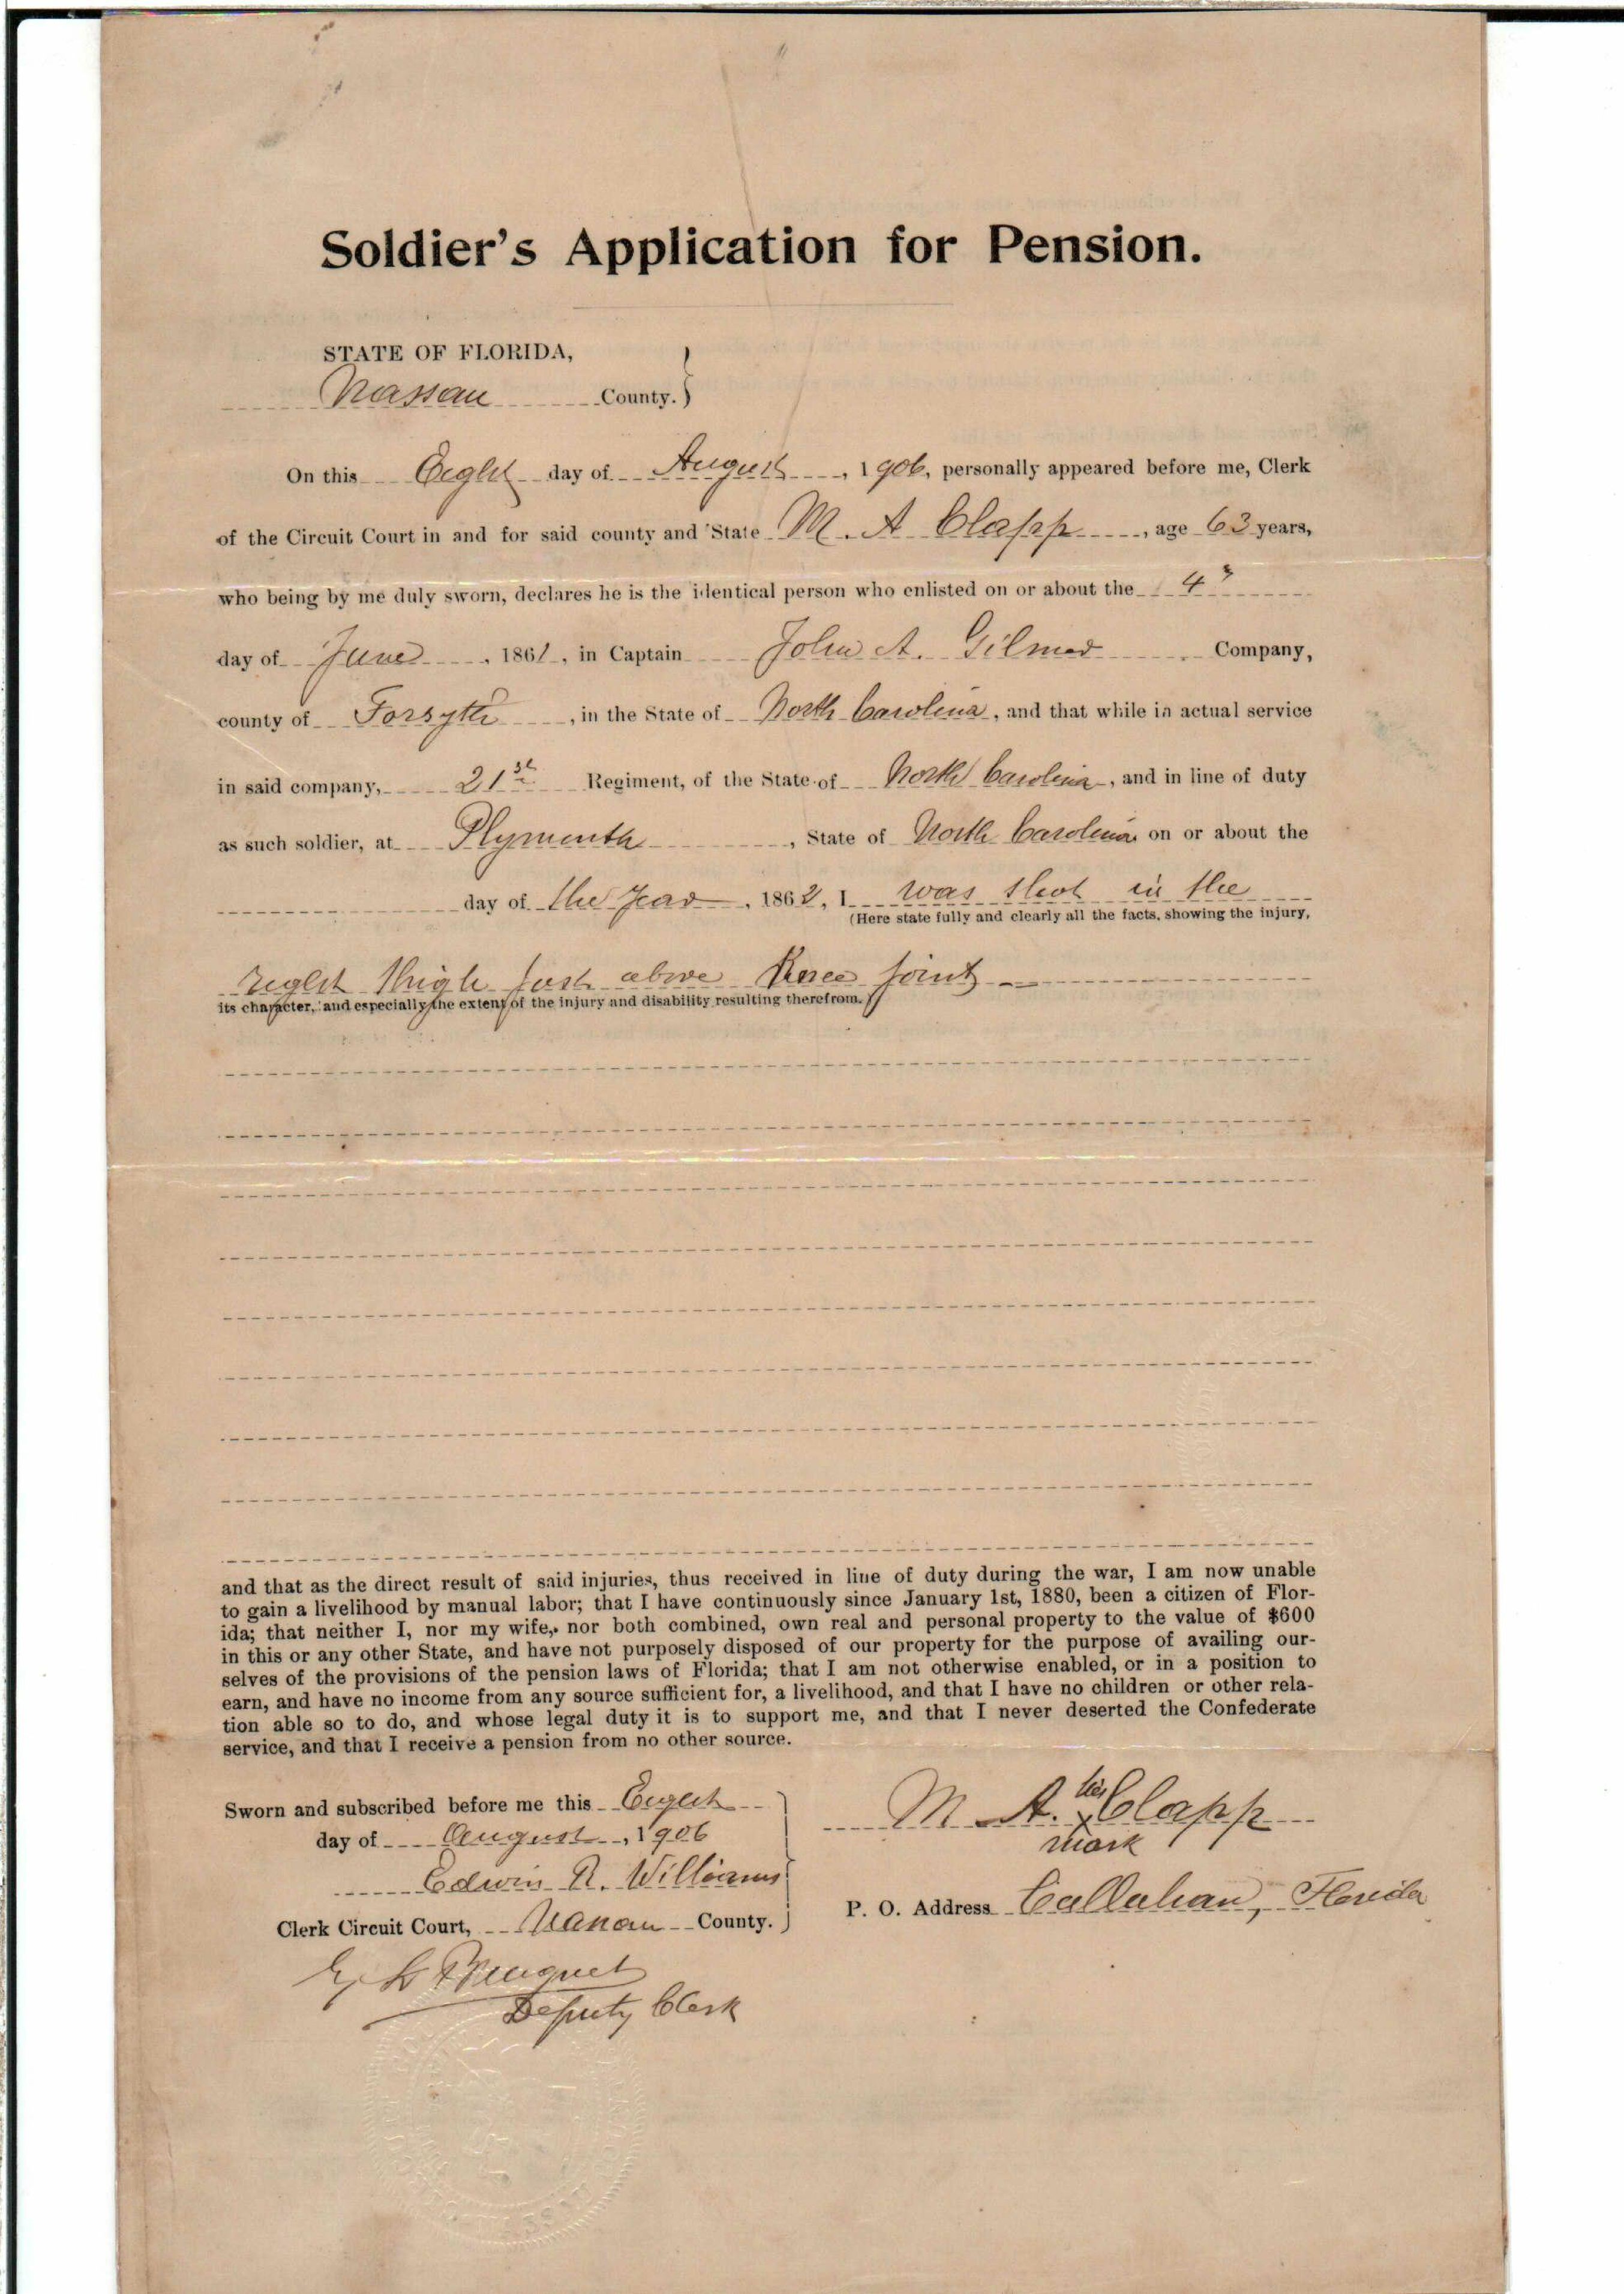 Soldier's Application for Pension.
STATE OF FLORIDA,
Nassau County.
On this Eight day of August, 1906, personally appeared before me, Clerk
of the Circuit Court in and for said county and State M. A Clapp, age 63 years,
who being by me duly sworn, declares he is the identical person who enlisted on or about the 4"
day of June, 1861, in Captain John A. Gilmer Company,
county of Forsyth, in the State of North Carolina, and that while in actual service
in said company, 21st Regiment, of the State of North Carolina, and in line of duty
as such soldier, at Plymouth, State of North Carolina on or about the
day of the year, 1862, I was shot in the
(Here state fully and clearly all the facts, showing the injury,
right thigh just above Knee joint
its character, and especially the extent of the injury and disability resulting therefrom.)
and that as the direct result of said injuries, thus received in line of duty during the war, I am now unable
to gain a livelihood by manual labor; that I have continuously since January 1st, 1880, been a citizen of Flor-
ida; that neither I, nor my wife, nor both combined, own real and personal property to the value of $600
in this or any other State, and have not purposely disposed of our property for the purpose of availing our-
selves of the provisions of the pension laws of Florida; that I am not otherwise enabled, or in a position to
earn, and have no income from any source sufficient for, a livelihood, and that I have no children or other rela-
tion able so to do, and whose legal duty it is to support me, and that I never deserted the Confederate
service, and that I receive a pension from no other source.
Sworn and subscribed before me this Eight
day of August, 1906
Edwin R. Williams
Clerk Circuit Court, Nassau County.
Deputy Clerk
M A. his x Clapp
mark
P. O. Address Callahan, Florida